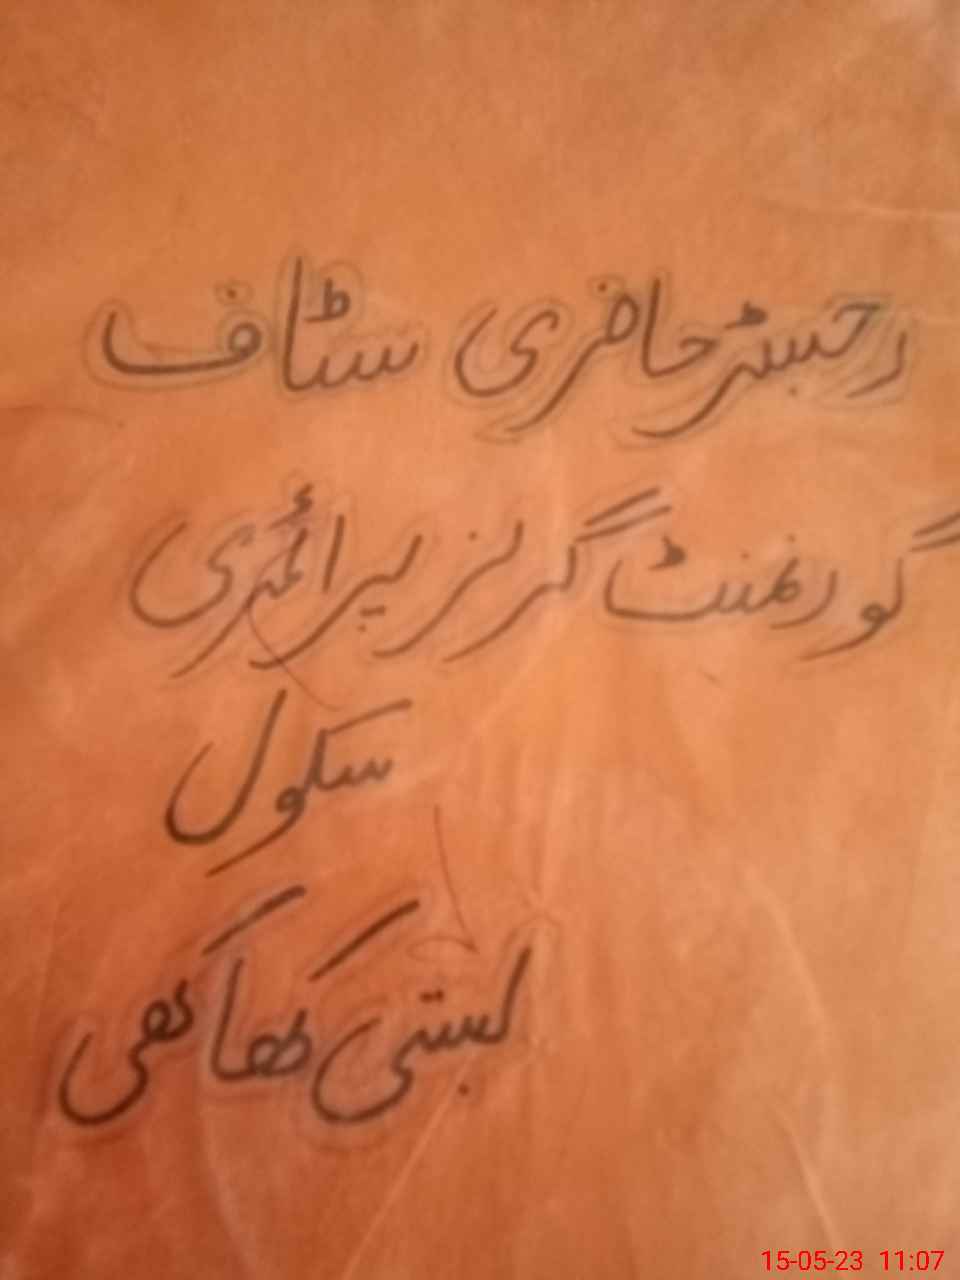 رجسٹر حاضری سٹاف
گورنمنٹ گرلز پرائمری
سکول
بستی کھاکھی
15-05-23 11:07